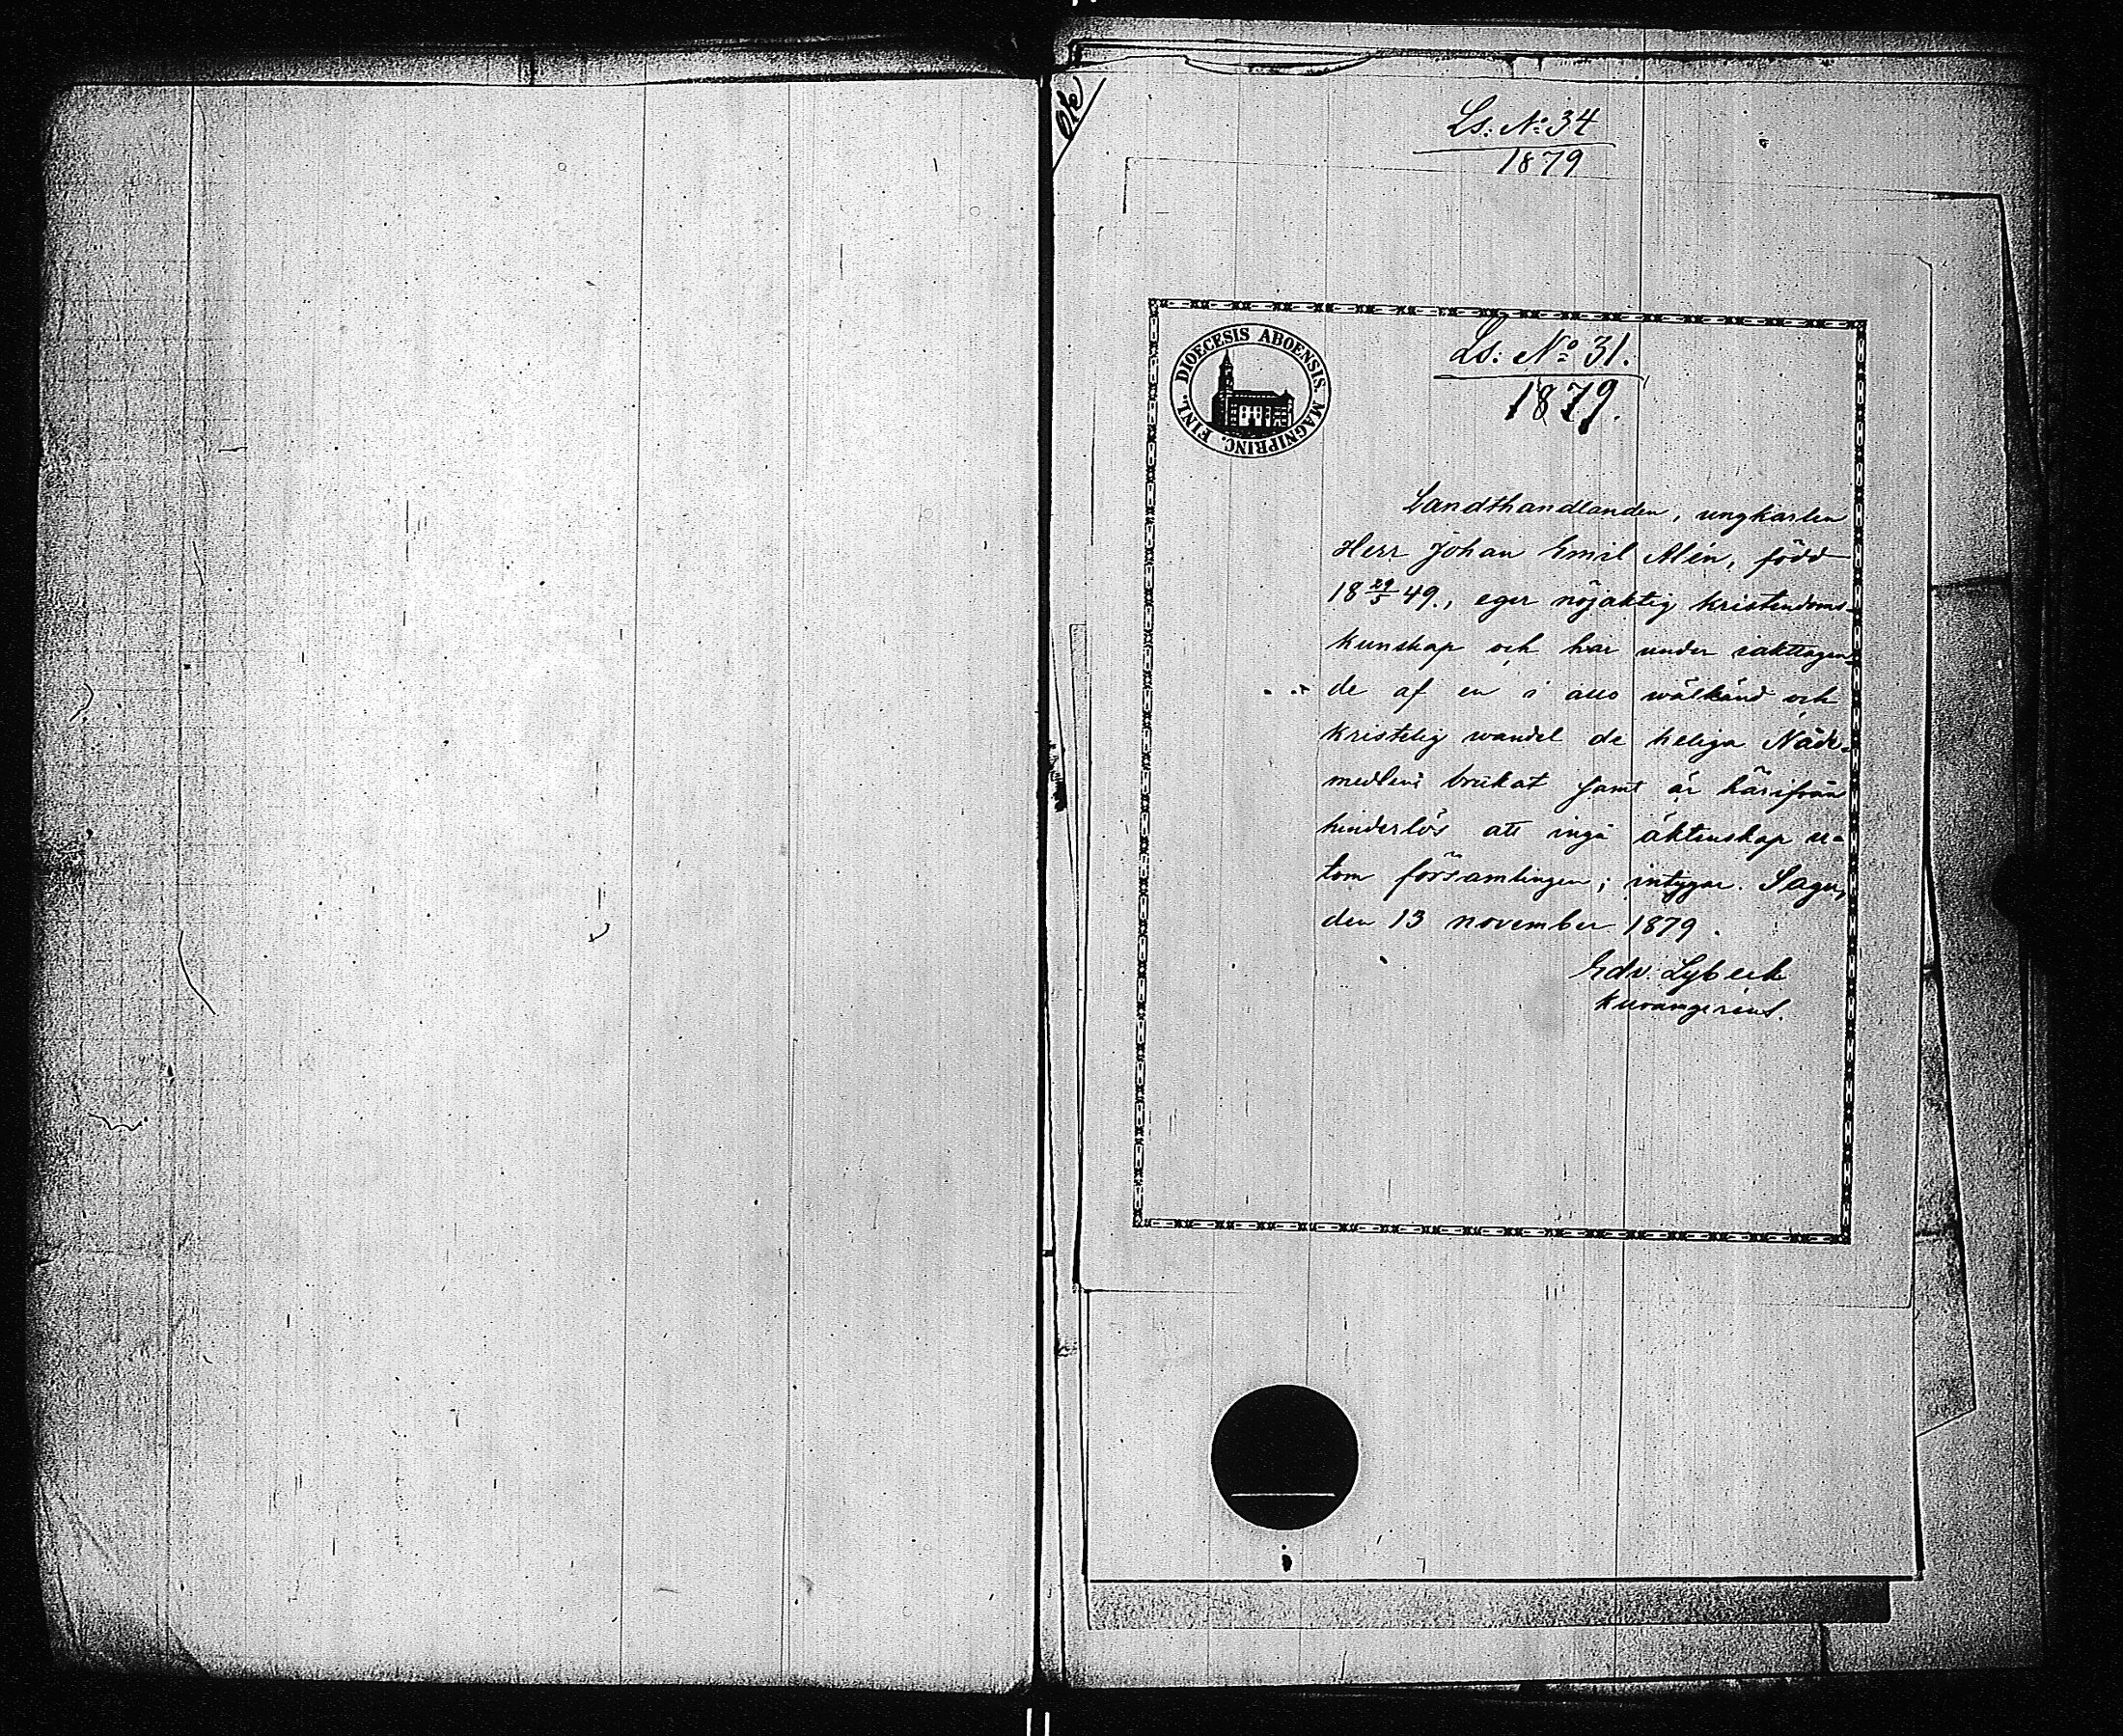 Ls: No 34
1879
DIOECESIS ABOENSIS. MAGNIPRINC. FINL.
Ls: No 31.
1879.
Landthandlanden, ungkarlen
Herr Johan Emil Alén, född
18 29/5 49., eger nöjaktig kristendoms-
kunskap och har under iakttagan-
de af en i allo wälkänd och
kristelig wandel de heliga Nåde-
medlen brukat samt är härifrån
hinderlös att ingå äktenskap u-
tom församlingen; intygar. Sagu,
den 13 november 1879.
Edv. Lybeck